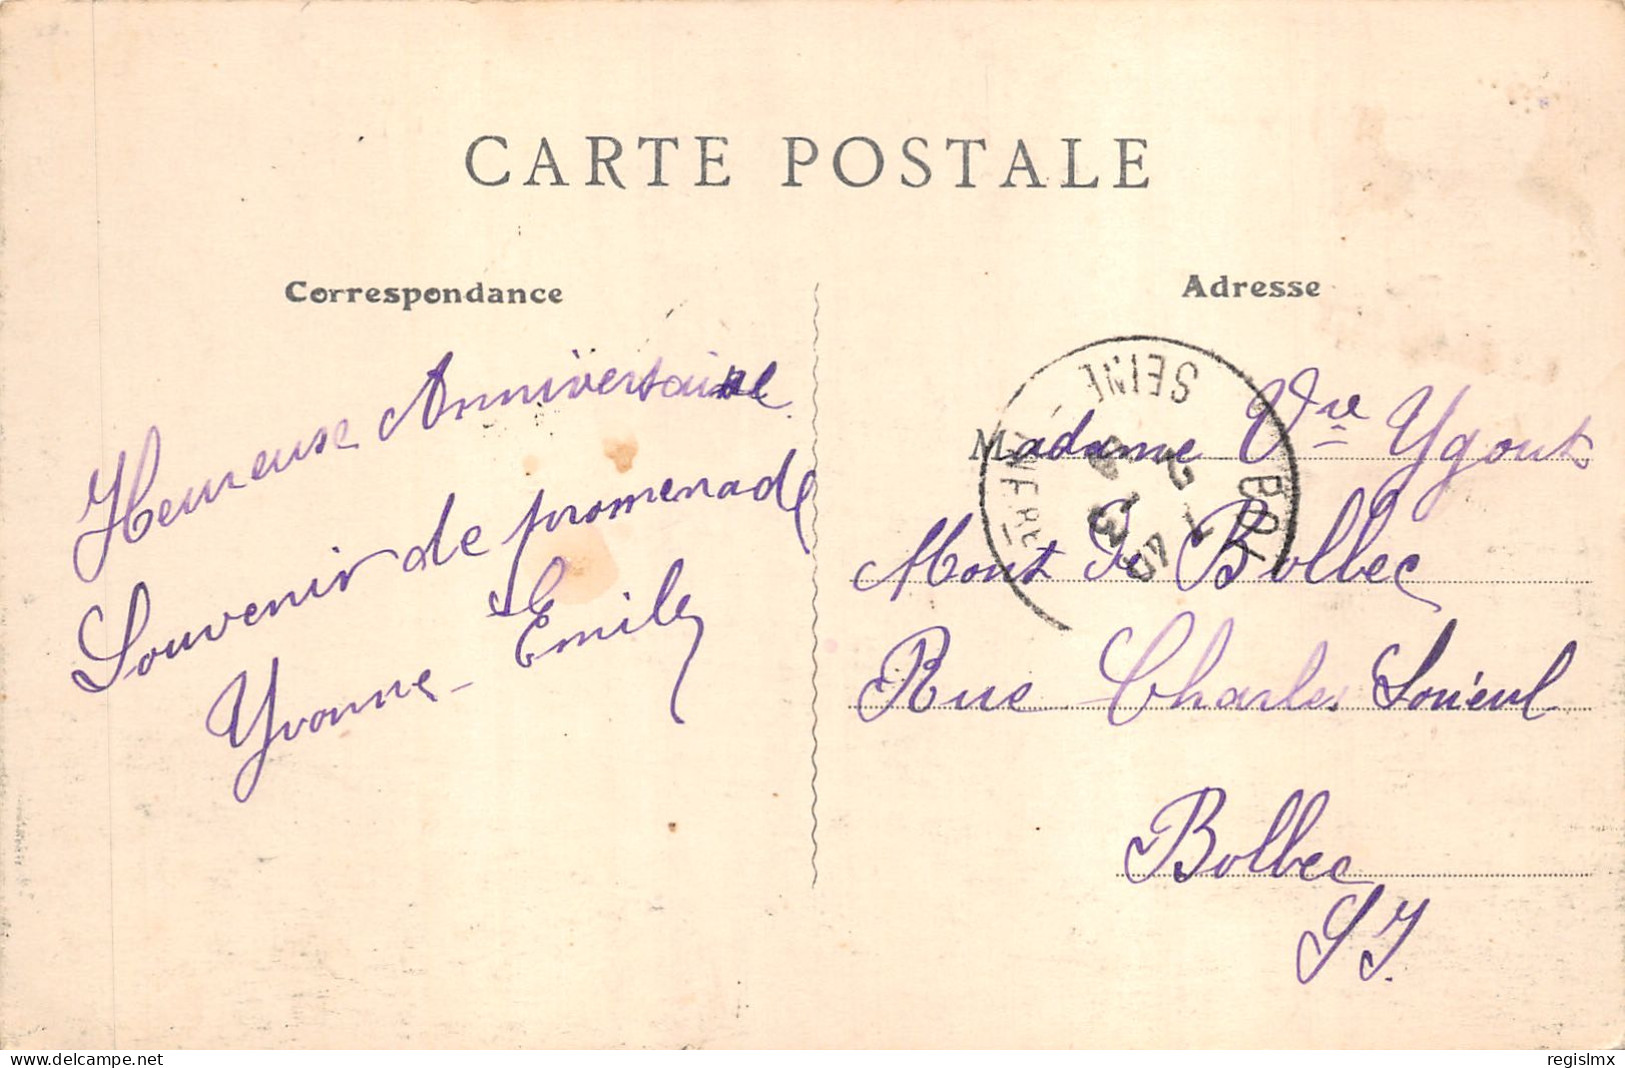 CARTE POSTALE
Correspondance
Heureuse Anniversaire
Souvenir de promenade
Yvonne - Emile
Adresse
Madame Vve Ygout
Mont de Bolbec
Rue Charles
Bolbec
SI
SEINE - INFRE
www.delcampe.net
regislmx